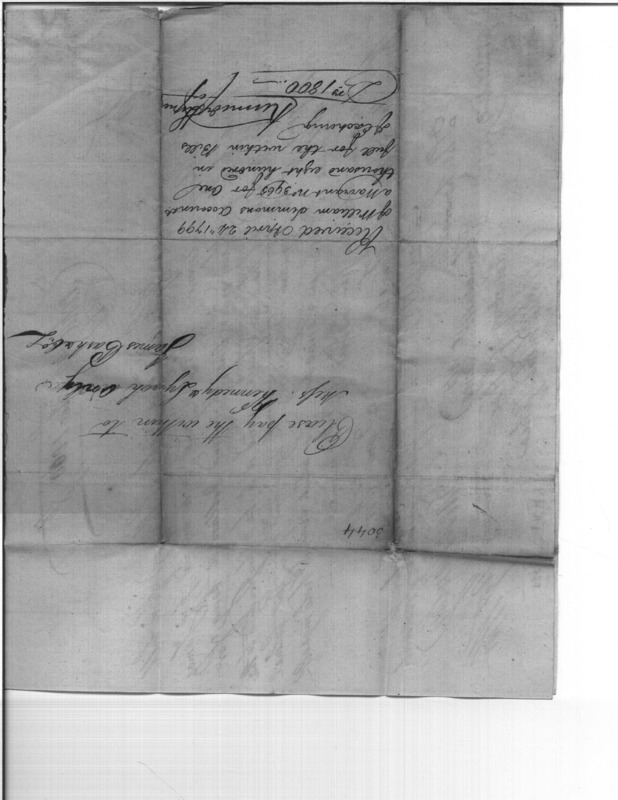 3044
Please pay the within to
Mess. Kennedy & Lynch only
James Cash & Co
Received April 24th 1799
of William Simmons Accountant
a Warrant No 3963 for One
thousand eight hundred in
full for the within Bills
of Exchange
Drs 1800..—